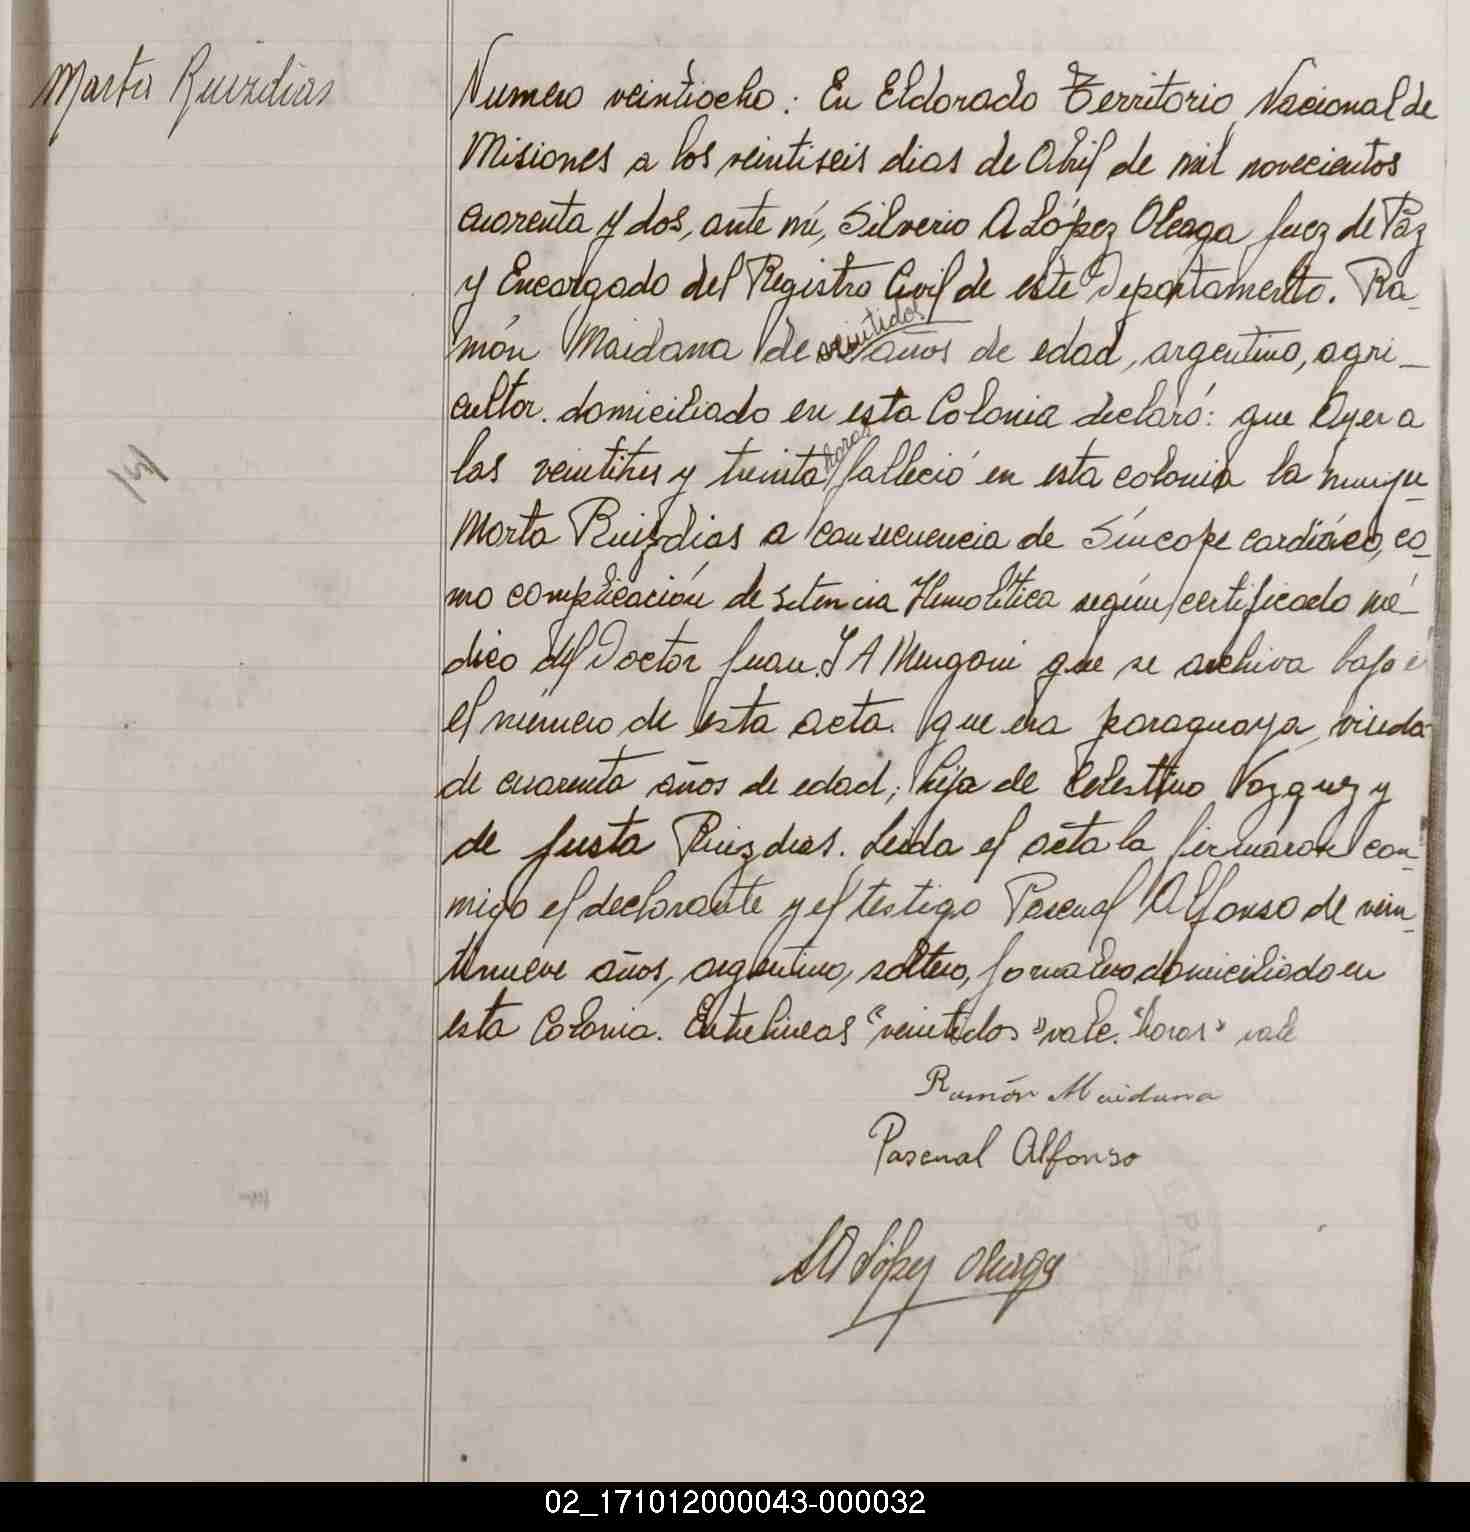 Marta Ruizdias
Numero veintiocho: En Eldorado Territorio Nacional de
Misiones a los veintiseis dias de Abril de mil novecientos
cuarenta y dos, ante mí, Silverio A López Oleaga Juez de Paz
y Encargado del Registro Civil de este Departamento. Ra-
veintidos
món Maidana de años de edad, argentino, agri-
cultor. domiciliado en esta Colonia declaró: que Ayer a
horas
las veintitres y treinta falleció en esta colonia la
Marta Ruizdias a consecuencia de Síncope cardiáco, co-
mo complicación de Hemolitica según certificado mé-
dico del Doctor Juan. J A Mengoni que se archiva bajo
el número de esta acta. que era paraguaya, viuda
de cuarenta años de edad; hija de Celestino Vazquez y
de Justa Ruizdias. Leida el acta la firmaron con-
migo el declarante y el testigo Pascual Alfonso de vein-
tinueve años, argentino, soltero, jornalero domiciliado en
esta Colonia. Entrelineas "veintidos" vale. "horas" vale
Ramón Maidana
Pascual Alfonso
SA López Oleaga
02_171012000043-000032